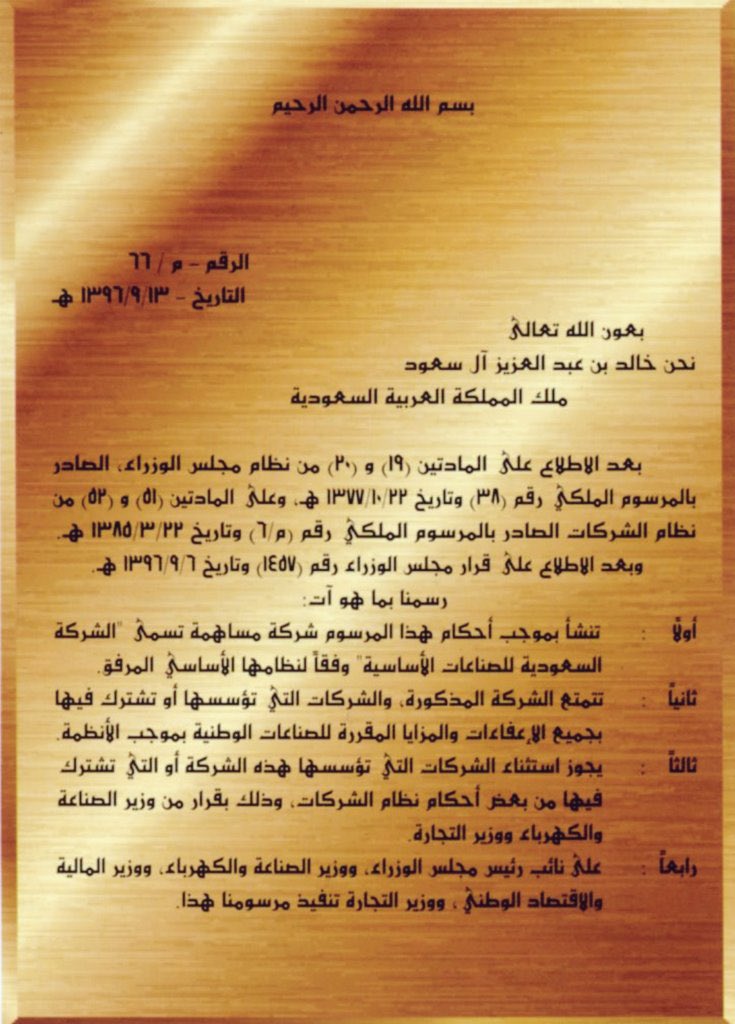 بسم الله الرحمن الرحيم
الرقم - م / ٦٦
التاريخ - ١٣٩٦/٩/١٣ هـ
بعون الله تعالى
نحن خالد بن عبد العزيز آل سعود
ملك المملكة العربية السعودية
بعد الاطلاع على المادتين (١٩) و (٢٠) من نظام مجلس الوزراء، الصادر
بالمرسوم الملكي رقم (٣٨) وتاريخ ١٣٧٧/١٠/٢٢ هـ، وعلى المادتين (٥١) و (٥٢) من
نظام الشركات الصادر بالمرسوم الملكي رقم (م/٦) وتاريخ ١٣٨٥/٣/٢٢ هـ.
وبعد الاطلاع على قرار مجلس الوزراء رقم (١٤٥٧) وتاريخ ١٣٩٦/٩/٦ هـ.
رسمنا بما هو آت:
أولاً : تنشأ بموجب أحكام هذا المرسوم شركة مساهمة تسمى "الشركة
السعودية للصناعات الأساسية" وفقاً لنظامها الأساسي المرفق.
ثانياً : تتمتع الشركة المذكورة، والشركات التي تؤسسها أو تشترك فيها
بجميع الإعفاءات والمزايا المقررة للصناعات الوطنية بموجب الأنظمة.
ثالثاً : يجوز استثناء الشركات التي تؤسسها هذه الشركة أو التي تشترك
فيها من بعض أحكام نظام الشركات، وذلك بقرار من وزير الصناعة
والكهرباء ووزير التجارة.
رابعاً : على نائب رئيس مجلس الوزراء، ووزير الصناعة والكهرباء، ووزير المالية
والاقتصاد الوطني، ووزير التجارة تنفيذ مرسومنا هذا.